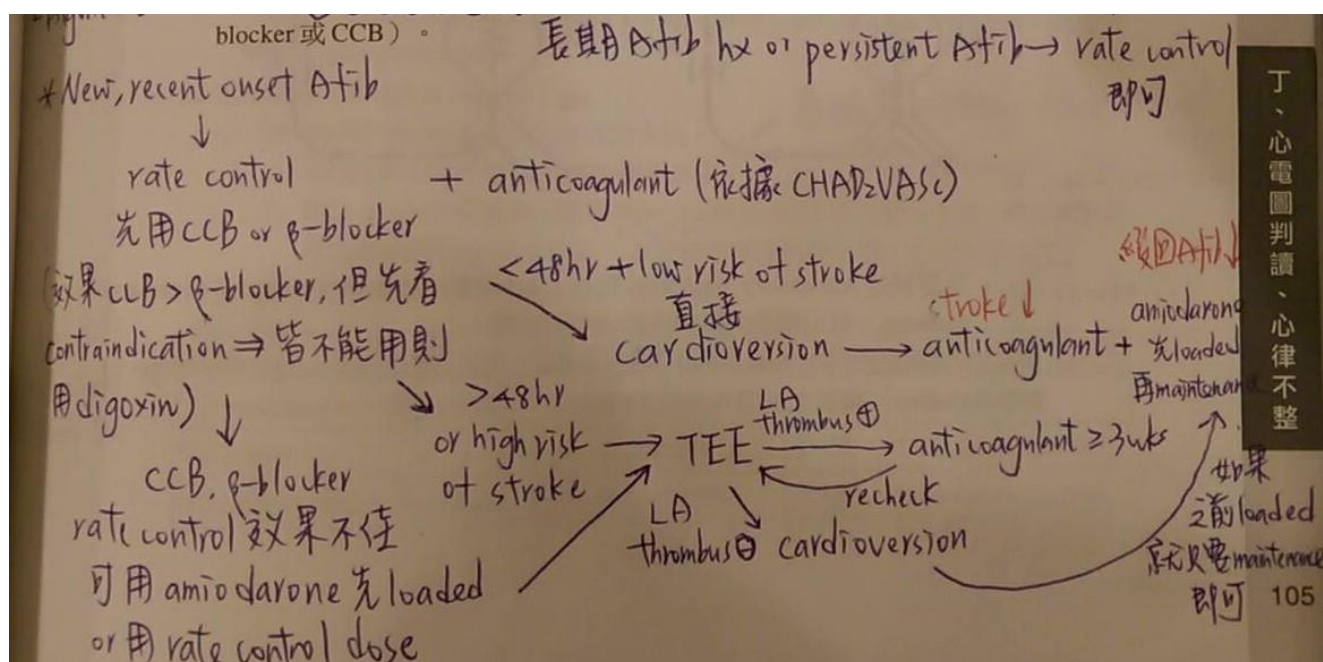 blocker 或 CCB）。
長期 Afib hx or persistent Afib → rate control
即可
*New, recent onset Afib
↓
rate control + anticoagulant (依據 CHAD2VASc)
先用 CCB or β-blocker
(效果 CCB > β-blocker, 但先看
contraindication ⇒ 皆不能用則
用 digoxin)
<48hr + low risk of stroke
直接
cardioversion → anticoagulant + amiodarone
先 loaded
再 maintenance
stroke ↓
維回 Afib ↓
>48hr
or high risk → TEE
of stroke
LA
thrombus ⊕ → anticoagulant ≥ 3 wks
recheck
LA
thrombus ⊖ cardioversion
如果
之前 loaded
就只要 maintenance
即可
CCB, β-blocker
rate control 效果不佳
可用 amiodarone 先 loaded
or 用 rate control dose
丁、心電圖判讀、心律不整
105